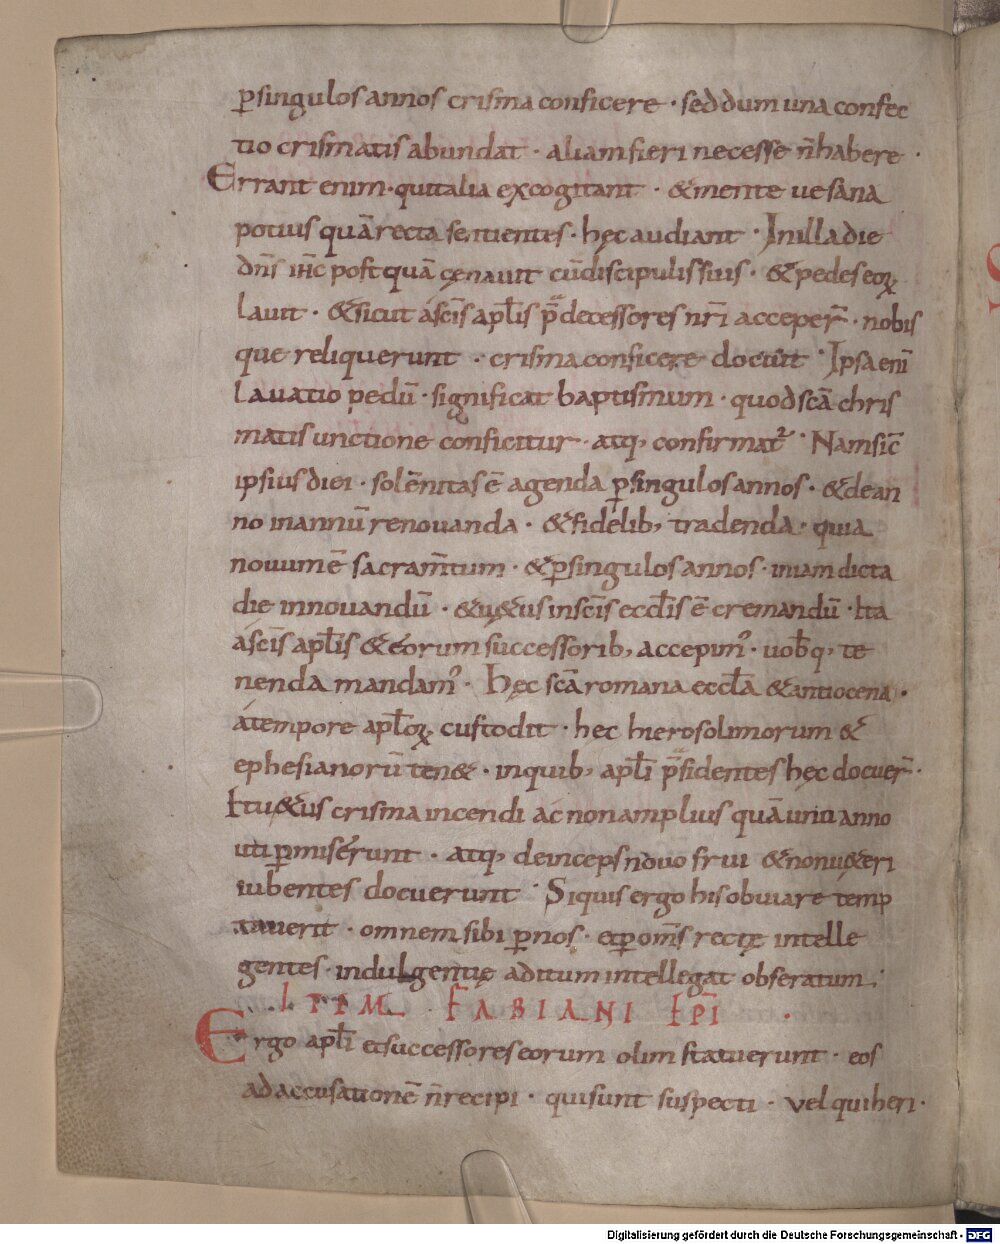 ꝑsingulos annos crisma conficere · sed dum una confec
tio crismatis abundat · aliam fieri necesse n̄ habere ·
Errant enim · qui talia excogitant · &mente uesana
potius quā recta sentientes · hęc audiant · In illa die
dn̄s ih̄c postquā cęnauit cū discipulis suis · &pedes eoꝝ
lauit · &sicut a sc̄is apl̄is p̄decessores nr̄i acceper̄ · nobis
que reliquerunt · crisma conficere docuit · Ipsa eni̅
lauatio pedū · significat baptismum · quod sc̄a chris
matis unctione conficitur · atq; confirmat᷑ · Nam sic̄
ipsius diei · solēnitas ē agenda ꝑ singulos annos · &de an
no in annū renouanda · &fidelib; tradenda · quia
nouum ē sacram̄tum · &ꝑ singulos annos · in iam dicta
die innouandū · &u&us in sc̄is eccl̄is ē cremandū · Ita
a sc̄is apl̄is &eorum successorib; accepim᷒ · uob̄q; te
nenda mandam᷒ · Hęc sc̄a romana eccl̄a &antiocena ·
a tempore apl̄oꝝ custodit · hęc hierosolimorum &
ephesianorū ten& · in quib; apl̄i p̄sidentes hęc docuer̄ ·
It u&us crisma incendi ac non amplius quā uno anno
uti ꝑmiserunt · atq; deinceps nouo frui &non u&eri
iubentes docuerunt · Siquis ergo his obuiare temp
tauerit · omnem sibi ꝑ nos · et ꝑ om̄s recte intelle
gentes · indulgentię aditum intellegat obseratum ;
ITEM FABIANI EP̄I ·
Ergo apl̄i et successores eorum olim statuerunt · eos
ad accusationē n̄ recipi · qui sunt suspecti · vel qui heri ·
Digitalisierung gefördert durch die Deutsche Forschungsgemeinschaft - DFG